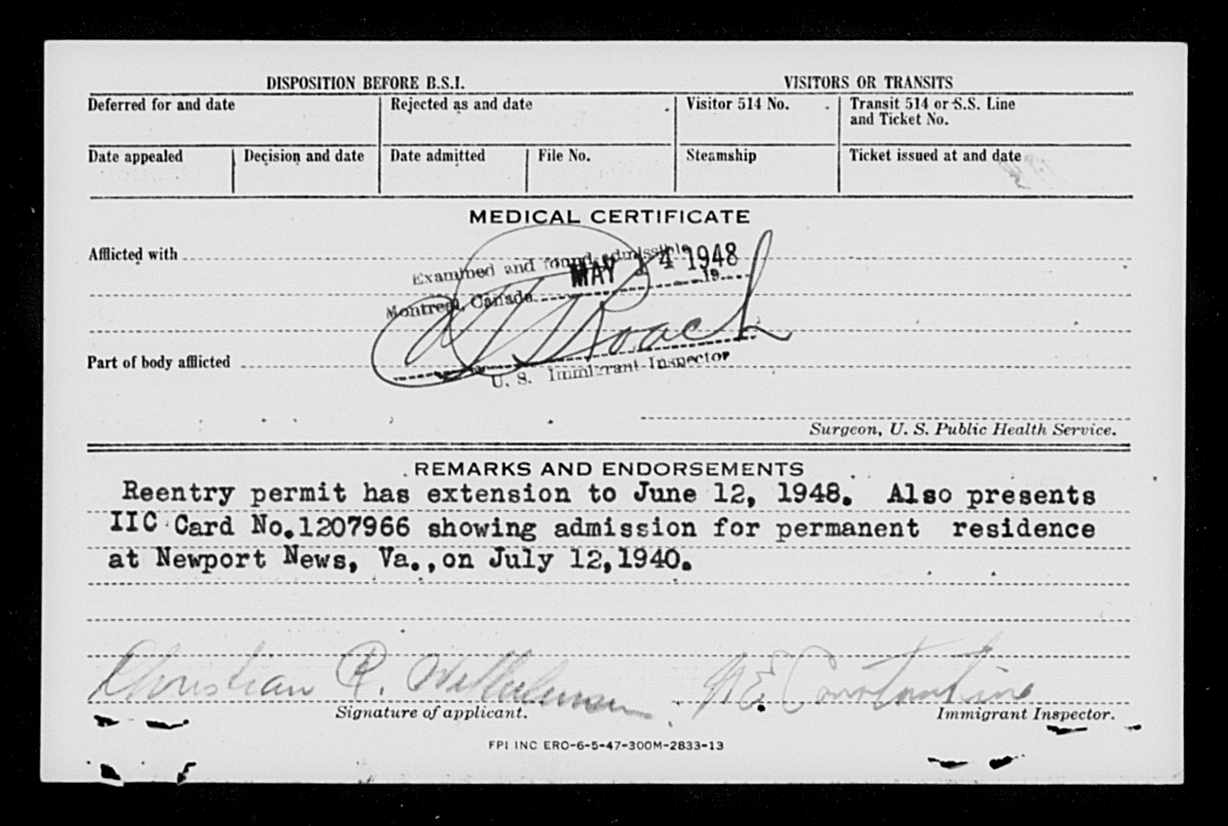 DISPOSITION BEFORE B.S.I. VISITORS OR TRANSITS
Deferred for and date Rejected as and date Visitor 514 No. Transit 514 or S.S. Line
and Ticket No.
Date appealed Decision and date Date admitted File No. Steamship Ticket issued at and date
MEDICAL CERTIFICATE
Afflicted with
Examined and found admissible
MAY 14 1948
Montreal, Canada 19
Roach
Part of body afflicted
U. S. Immigrant Inspector
Surgeon, U. S. Public Health Service.
REMARKS AND ENDORSEMENTS
Reentry permit has extension to June 12, 1948. Also presents
IIC Card No.1207966 showing admission for permanent residence
at Newport News, Va.,on July 12,1940.
Christian R. N E Constantine
Signature of applicant. Immigrant Inspector.
FPI INC ERO-6-5-47-300M-2833-13